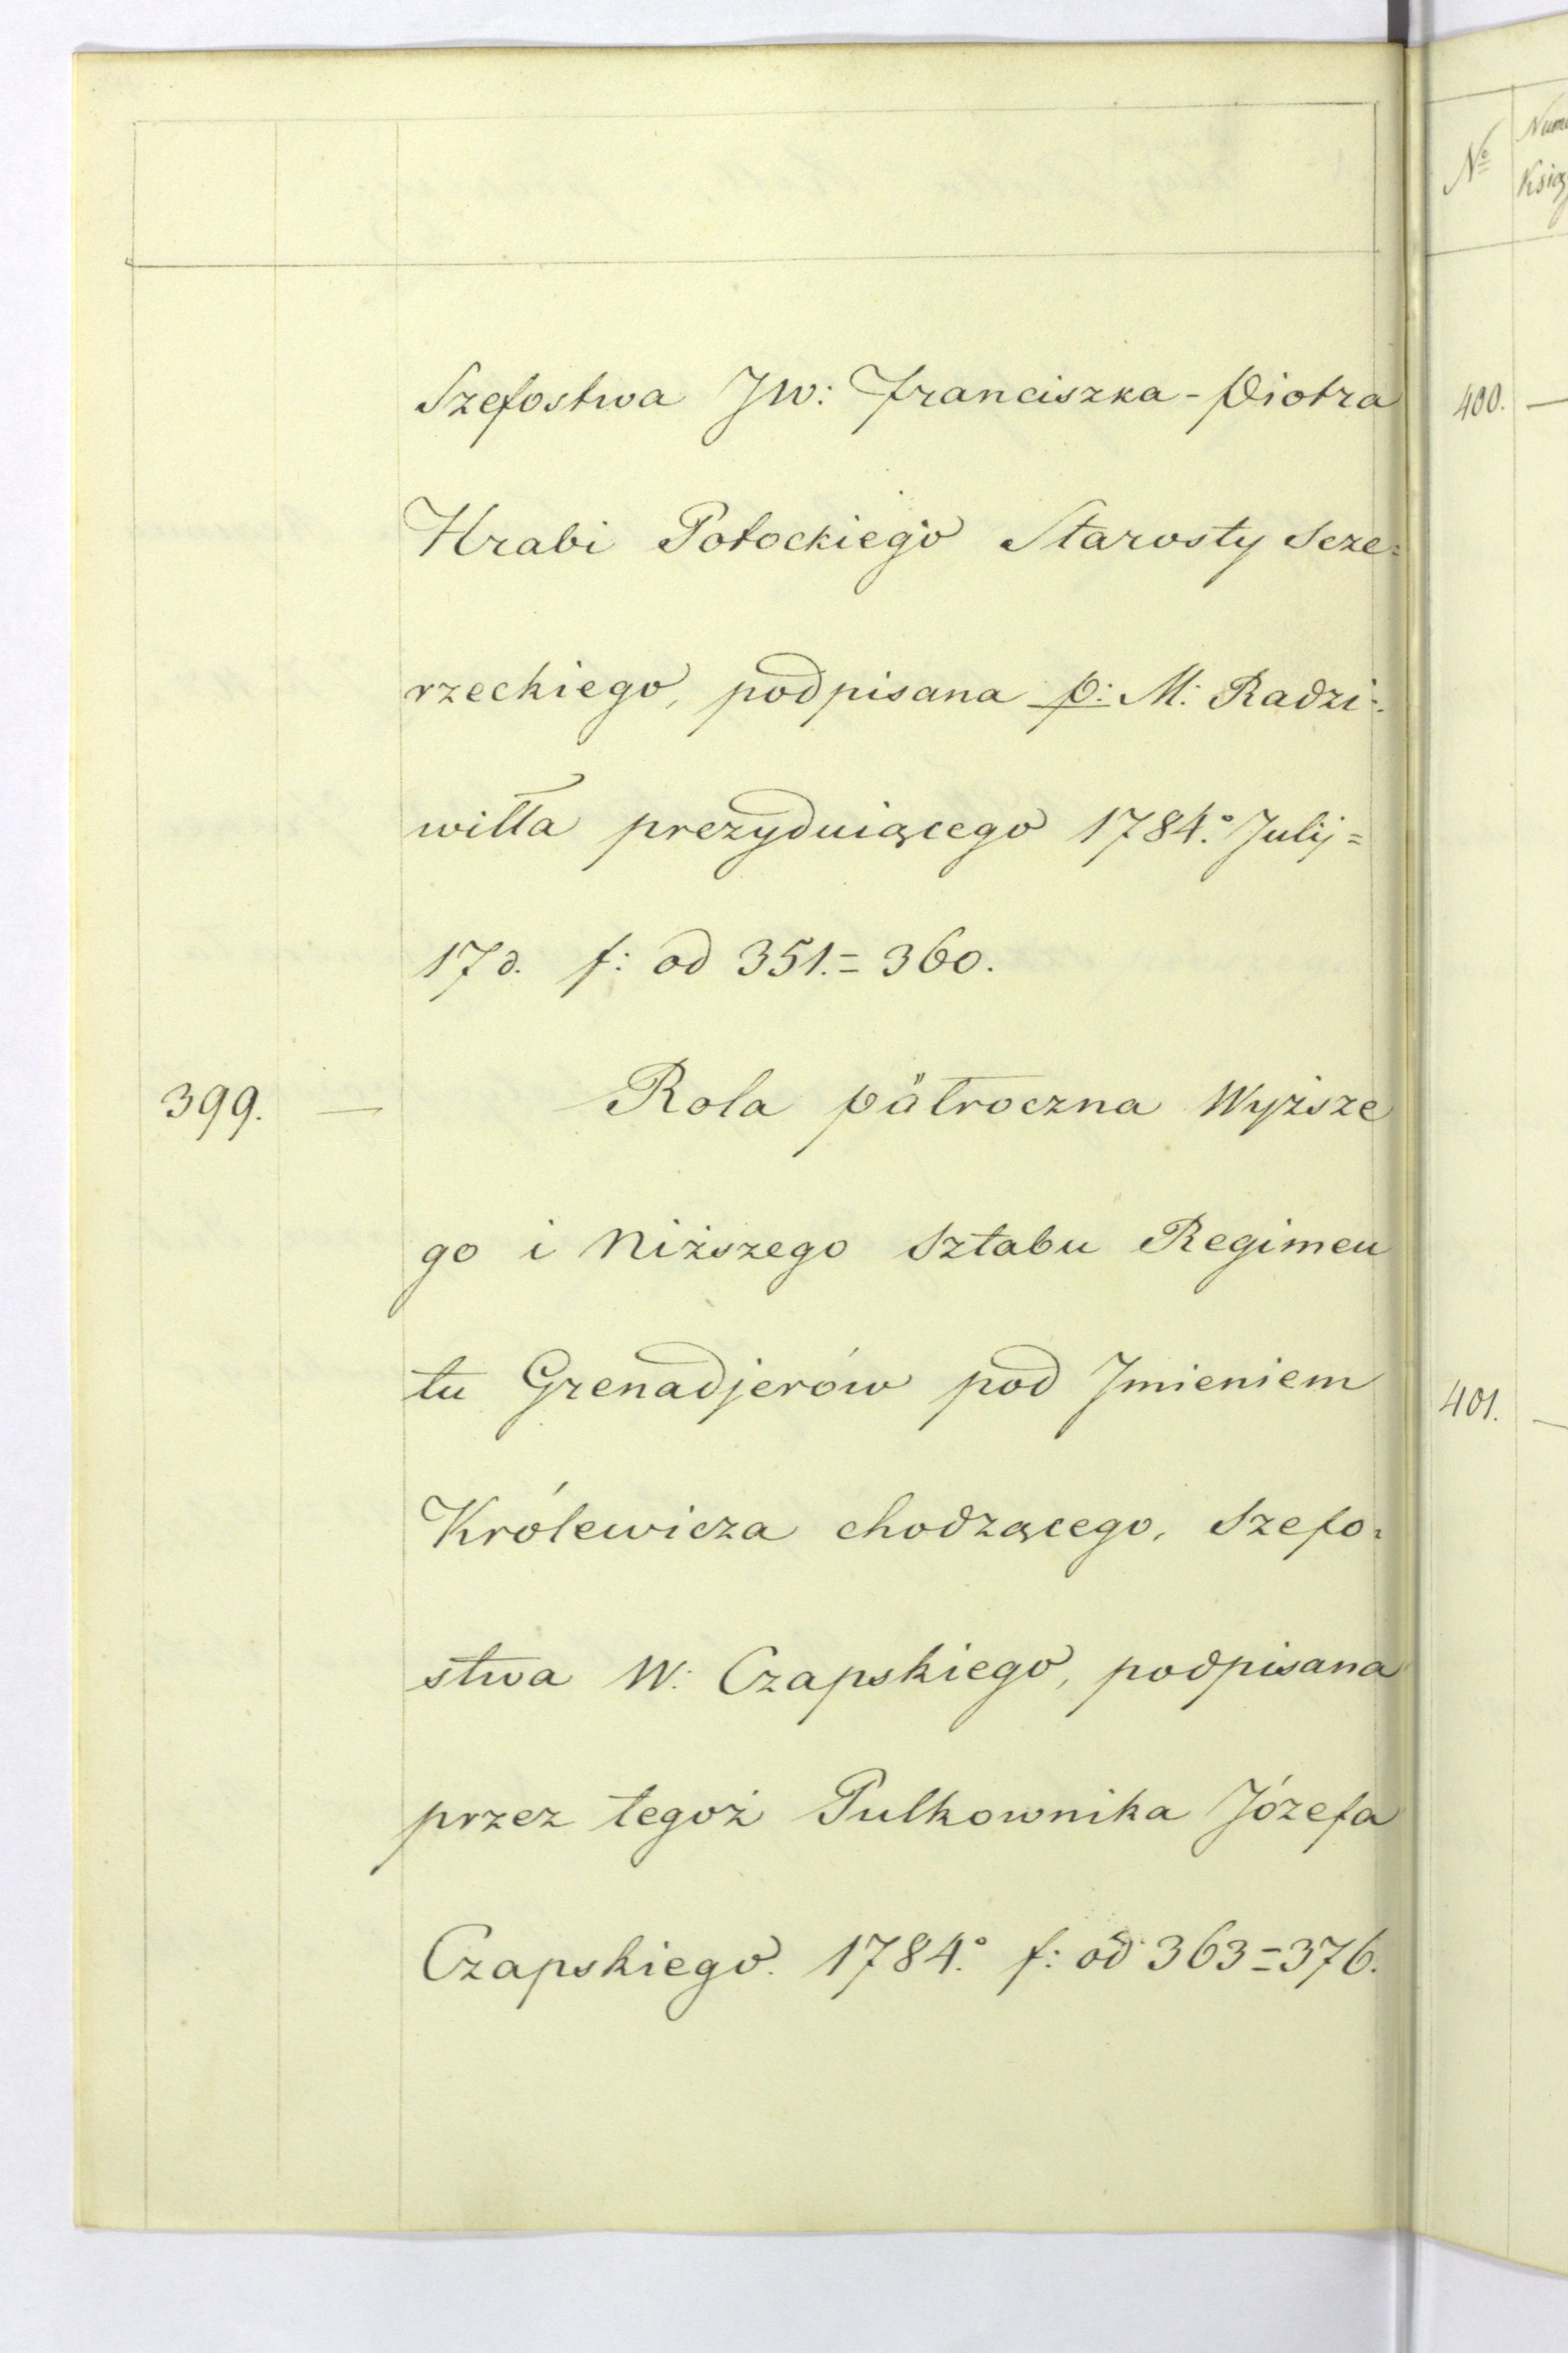 Szefostwa JW: Franciszka-Piotra
Hrabi Potockiego Starosty Scze=
rzeckiego, podpisana p: M: Radzi-
wiłła prezyduiącego 1784.° Julij=
17 d. f: od 351.=360.
399. — Rola pułroczna Wyższe
go i Niższego Sztabu Regimen
tu Grenadjerów pod Jmieniem
Królewicza chodzącego, Szefo=
stwa W: Czapskiego, podpisana
przez tegoż Pułkownika Józefa
Czapskiego. 1784.° f: od 363=376.
No
400. —
401. —